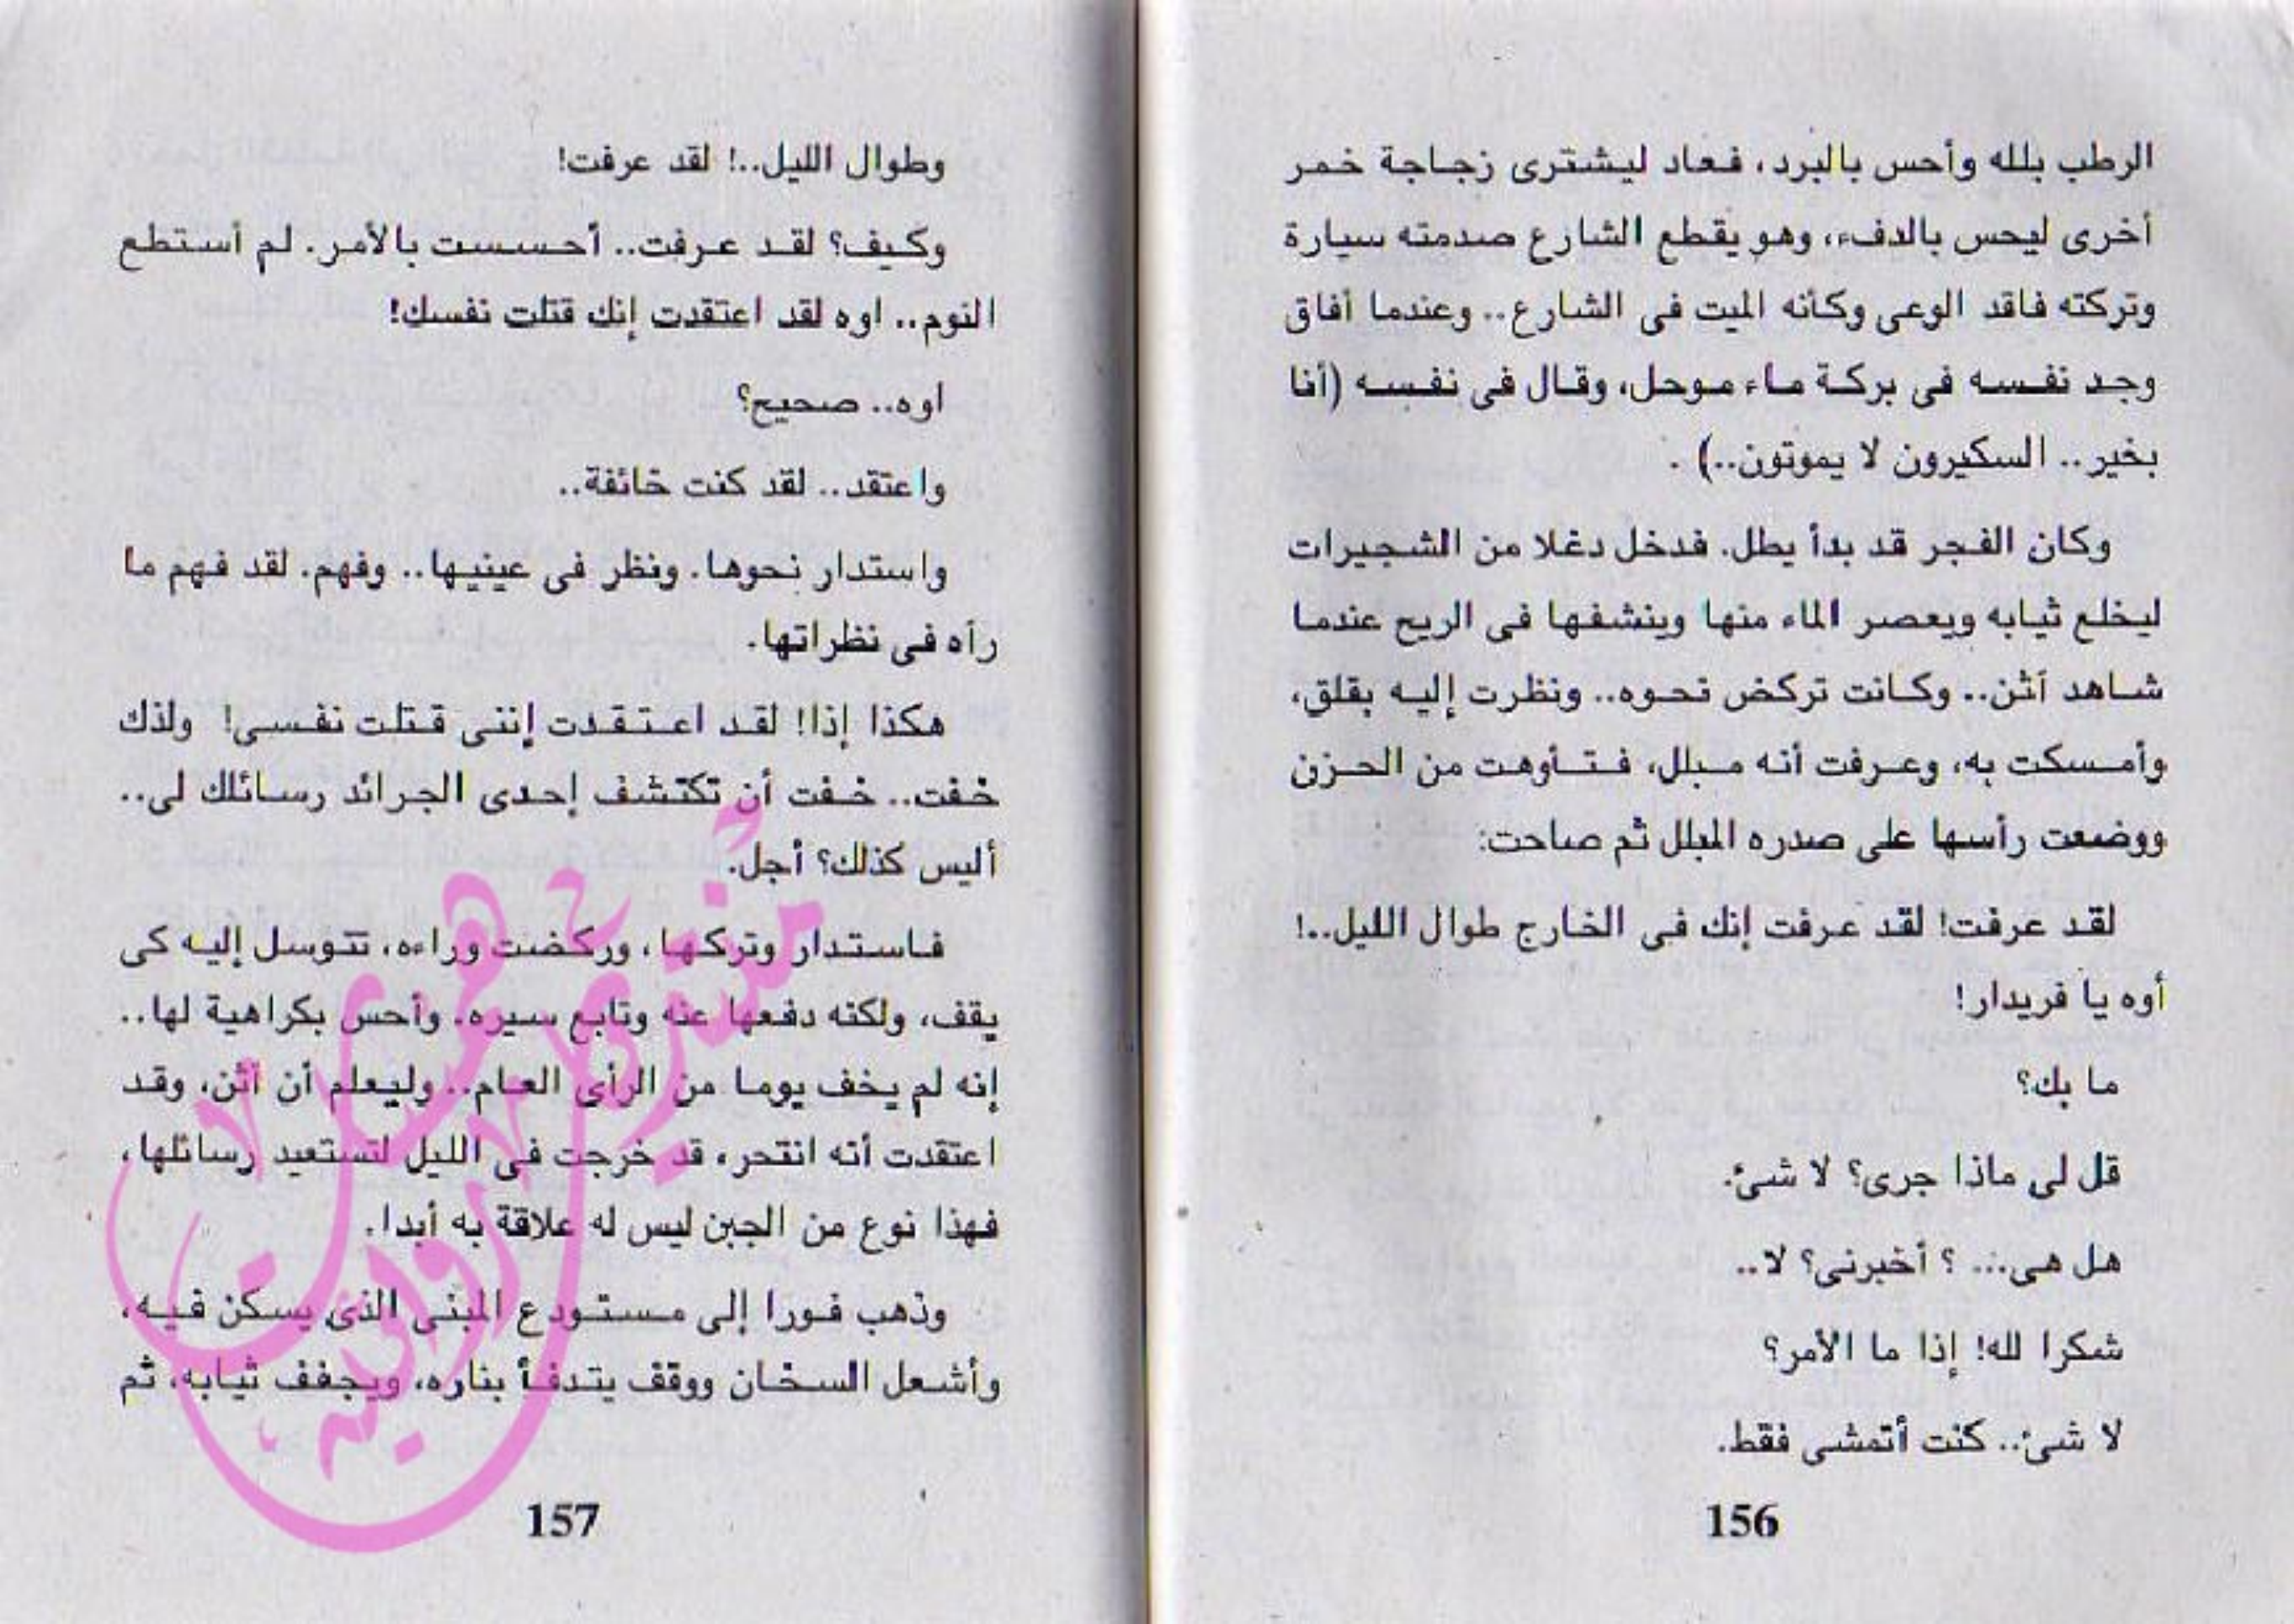 الرطب بلله وأحس بالبرد، فعاد ليشترى زجاجة خمر
أخرى ليحس بالدفء، وهو يقطع الشارع صدمته سيارة
وتركته فاقد الوعى وكأنه الميت فى الشارع.. وعندما أفاق
وجد نفسه فى بركة ماء موحل، وقال فى نفسه (أنا
بخير.. السكيرون لا يموتون..) .
وكان الفجر قد بدأ يطل. فدخل دغلا من الشجيرات
ليخلع ثيابه ويعصر الماء منها وينشفها فى الريح عندما
شاهد أثن.. وكانت تركض نحوه.. ونظرت إليه بقلق،
وأمسكت به، وعرفت أنه مبلل، فتأوهت من الحزن
ووضعت رأسها على صدره المبلل ثم صاحت:
لقد عرفت! لقد عرفت إنك فى الخارج طوال الليل..!
أوه يا فريدار!
ما بك؟
قل لى ماذا جرى؟ لا شئ.
هل هى... ؟ أخبرنى؟ لا..
شكرا لله! إذا ما الأمر؟
لا شئ.. كنت أتمشى فقط.
156
وطوال الليل..! لقد عرفت!
وكيف؟ لقد عرفت.. أحسست بالأمر. لم أستطع
النوم.. اوه لقد اعتقدت إنك قتلت نفسك!
اوه.. صحيح؟
واعتقد.. لقد كنت خائفة..
واستدار نحوها. ونظر فى عينيها.. وفهم. لقد فهم ما
رآه فى نظراتها.
هكذا إذا! لقد اعتقدت إننى قتلت نفسى! ولذك
خفت.. خفت أن تكتشف إحدى الجرائد رسائلك لى..
أليس كذلك؟ أجل.
فاستدار وتركها، وركضت وراءه، تتوسل إليه كى
يقف، ولكنه دفعها عنه وتابع سيره. وأحس بكراهية لها..
إنه لم يخف يوما من الرأى العام.. وليعلم أن أثن، وقد
اعتقدت أنه انتحر، قد خرجت فى الليل لتستعيد رسائلها،
فهذا نوع من الجبن ليس له علاقة به أبدا.
وذهب فورا إلى مستودع المبنى الذى يسكن فيه،
وأشعل السخان ووقف يتدفأ بناره، ويجفف ثيابه، ثم
157